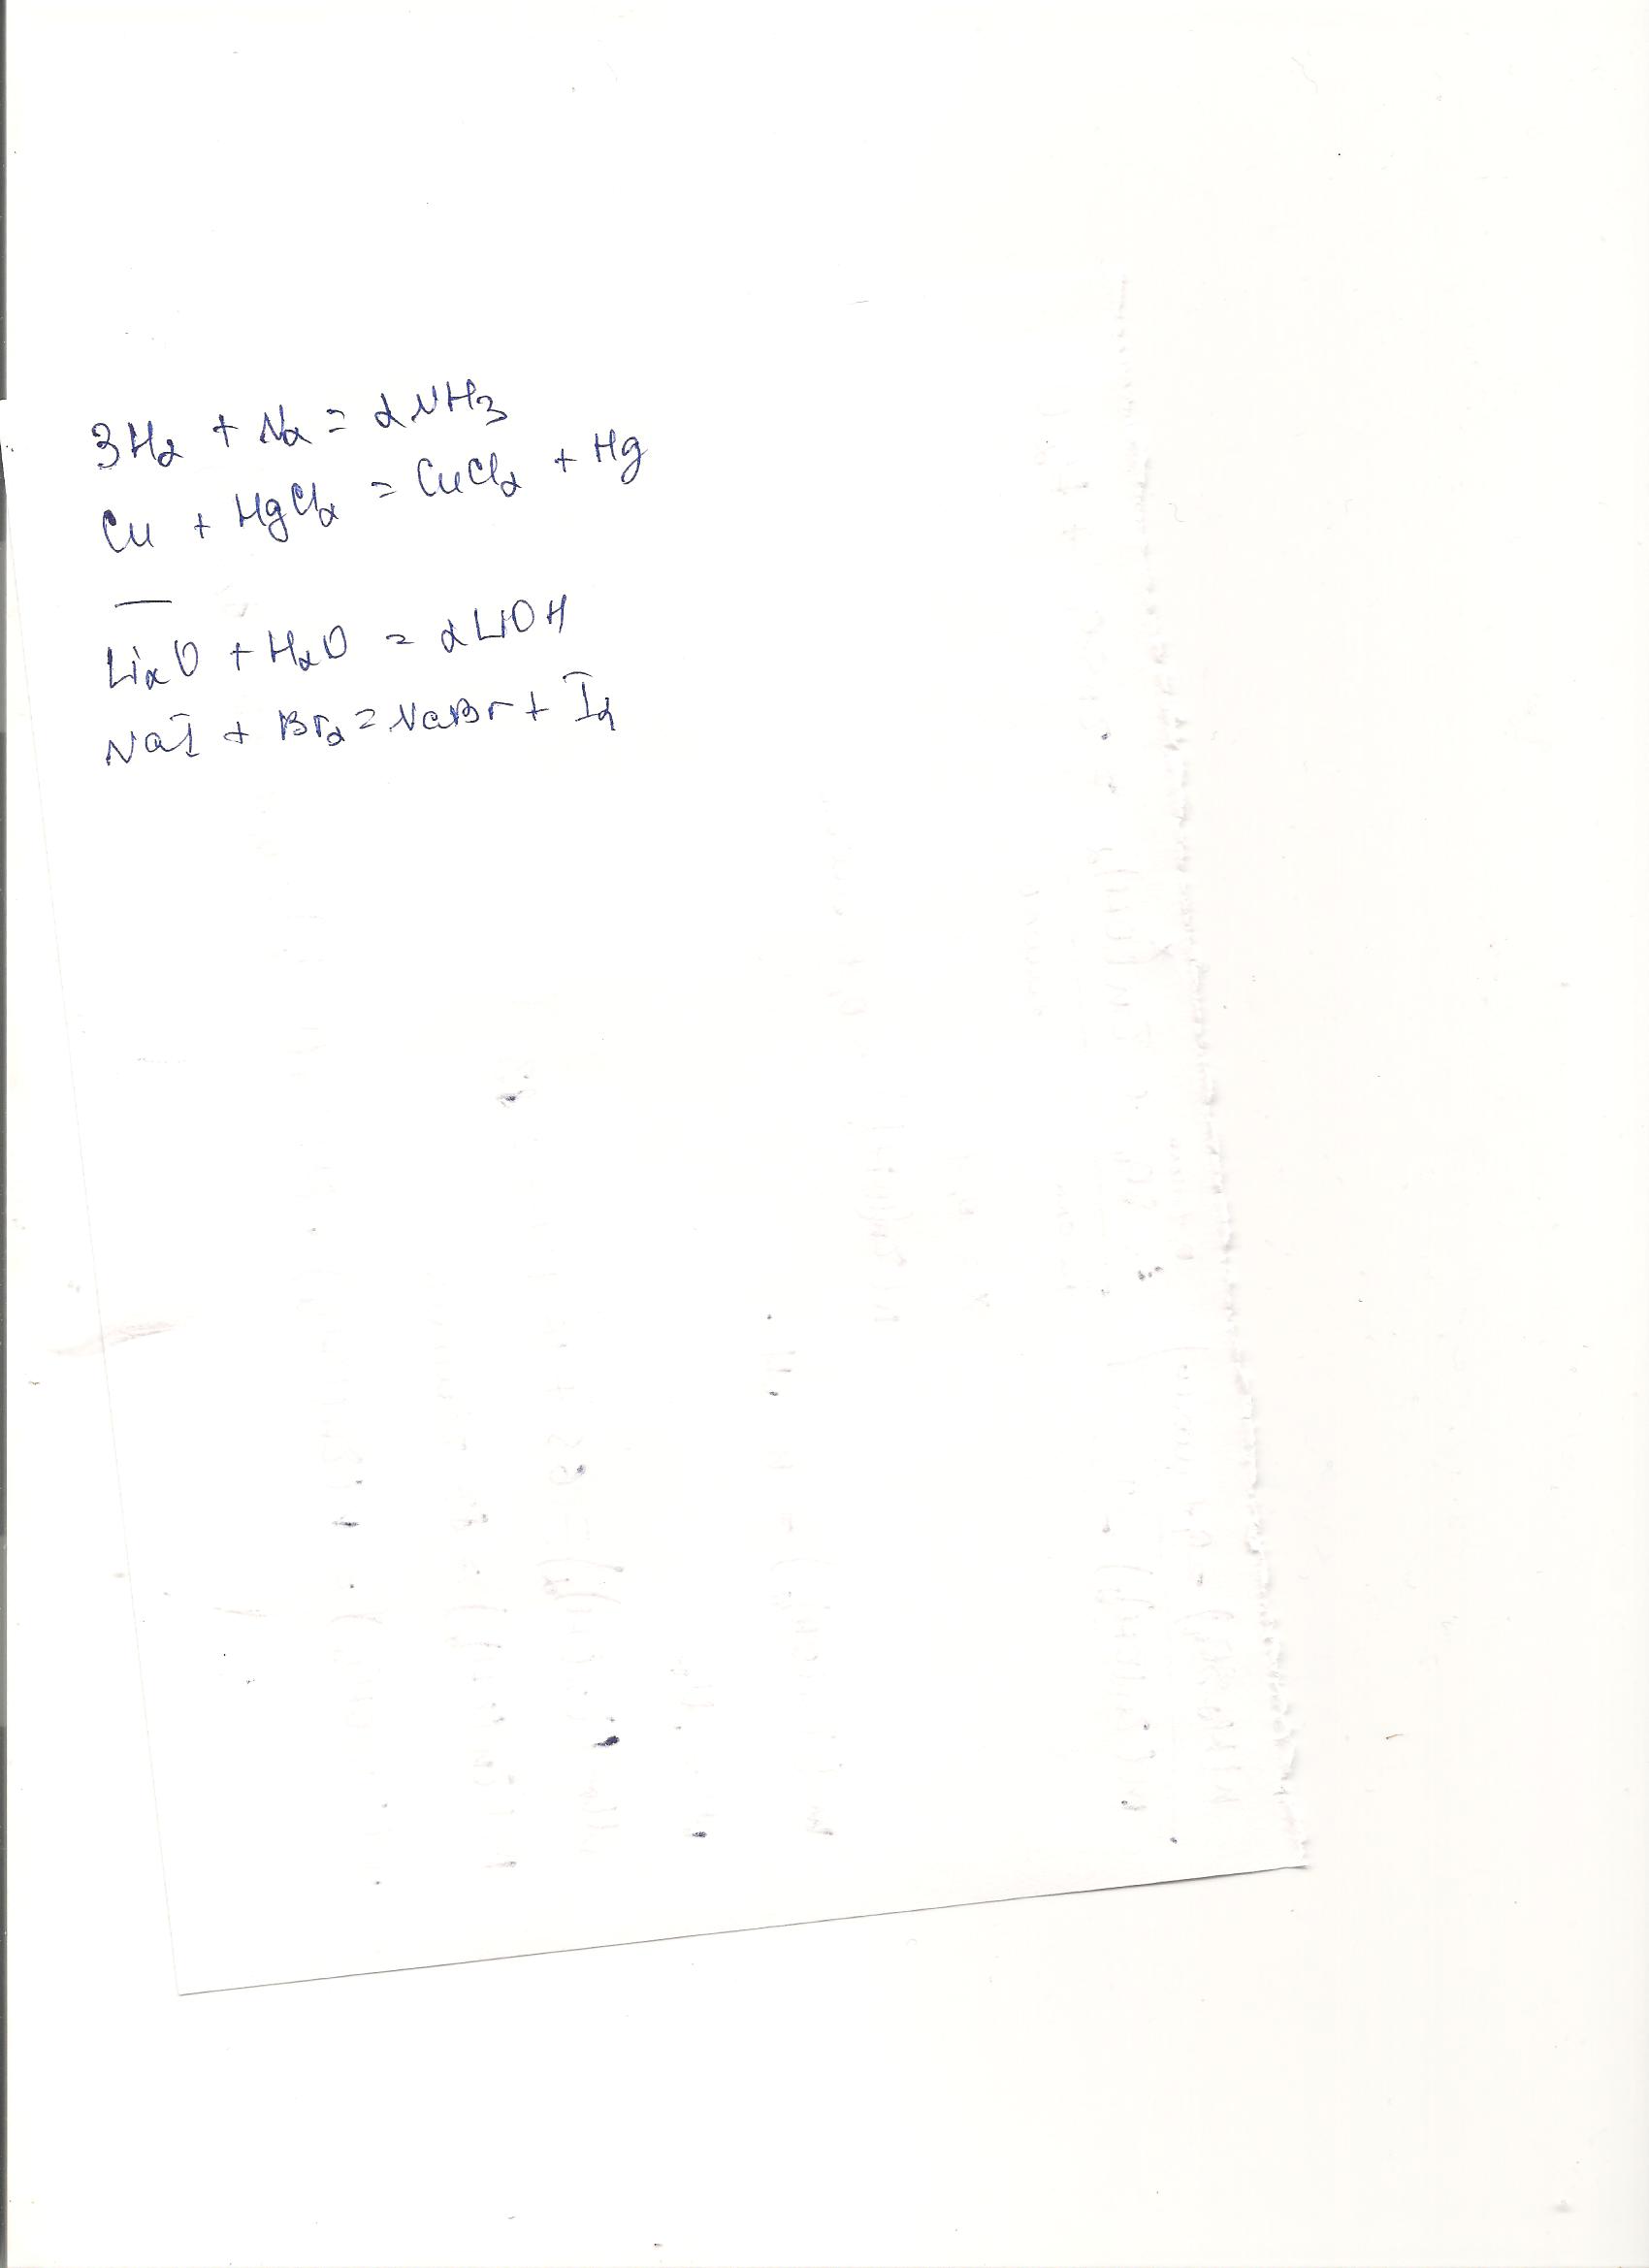 3H₂ + N₂ = 2NH₃
Cu + HgCl₂ = CuCl₂ + Hg
—
Li₂O + H₂O = 2LiOH
NaI + Br₂ = NaBr + I₂